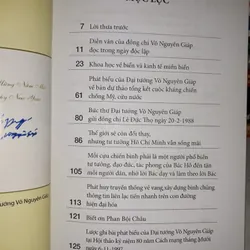 MỤC LỤC
7 Lời thưa trước
11 Diễn văn của đồng chí Võ Nguyên Giáp
đọc trong ngày độc lập
23 Khoa học về biển và kinh tế miền biển
65 Phát biểu của Đại tướng Võ Nguyên Giáp
về bản dự thảo tổng kết cuộc kháng chiến
chống Mỹ, cứu nước
80 Bức thư Đại tướng Võ Nguyên Giáp
gửi đồng chí Lê Đức Thọ ngày 20-2-1988
86 Thế giới sẽ còn đổi thay,
nhưng tư tưởng Hồ Chí Minh vẫn sống mãi
105 Mỗi cựu chiến binh phải là một người phổ biến
tư tưởng, đạo đức, tác phong của Bác Hồ đến tận
mỗi người dân, nhớ lời Bác dạy và làm theo lời Bác
113 Phát huy truyền thống vẻ vang xây dựng binh chủng
thông tin liên lạc tinh thông về kỹ thuật, tác chiến
điện tử hiện đại
121 Biết ơn Phan Bội Châu
125 Lược ghi bài phát biểu của Đại tướng Võ Nguyên Giáp
tại Hội thảo kỷ niệm 80 năm Cách mạng tháng Mười
ngày 6-11-1997
tướng Võ Nguyên Giáp